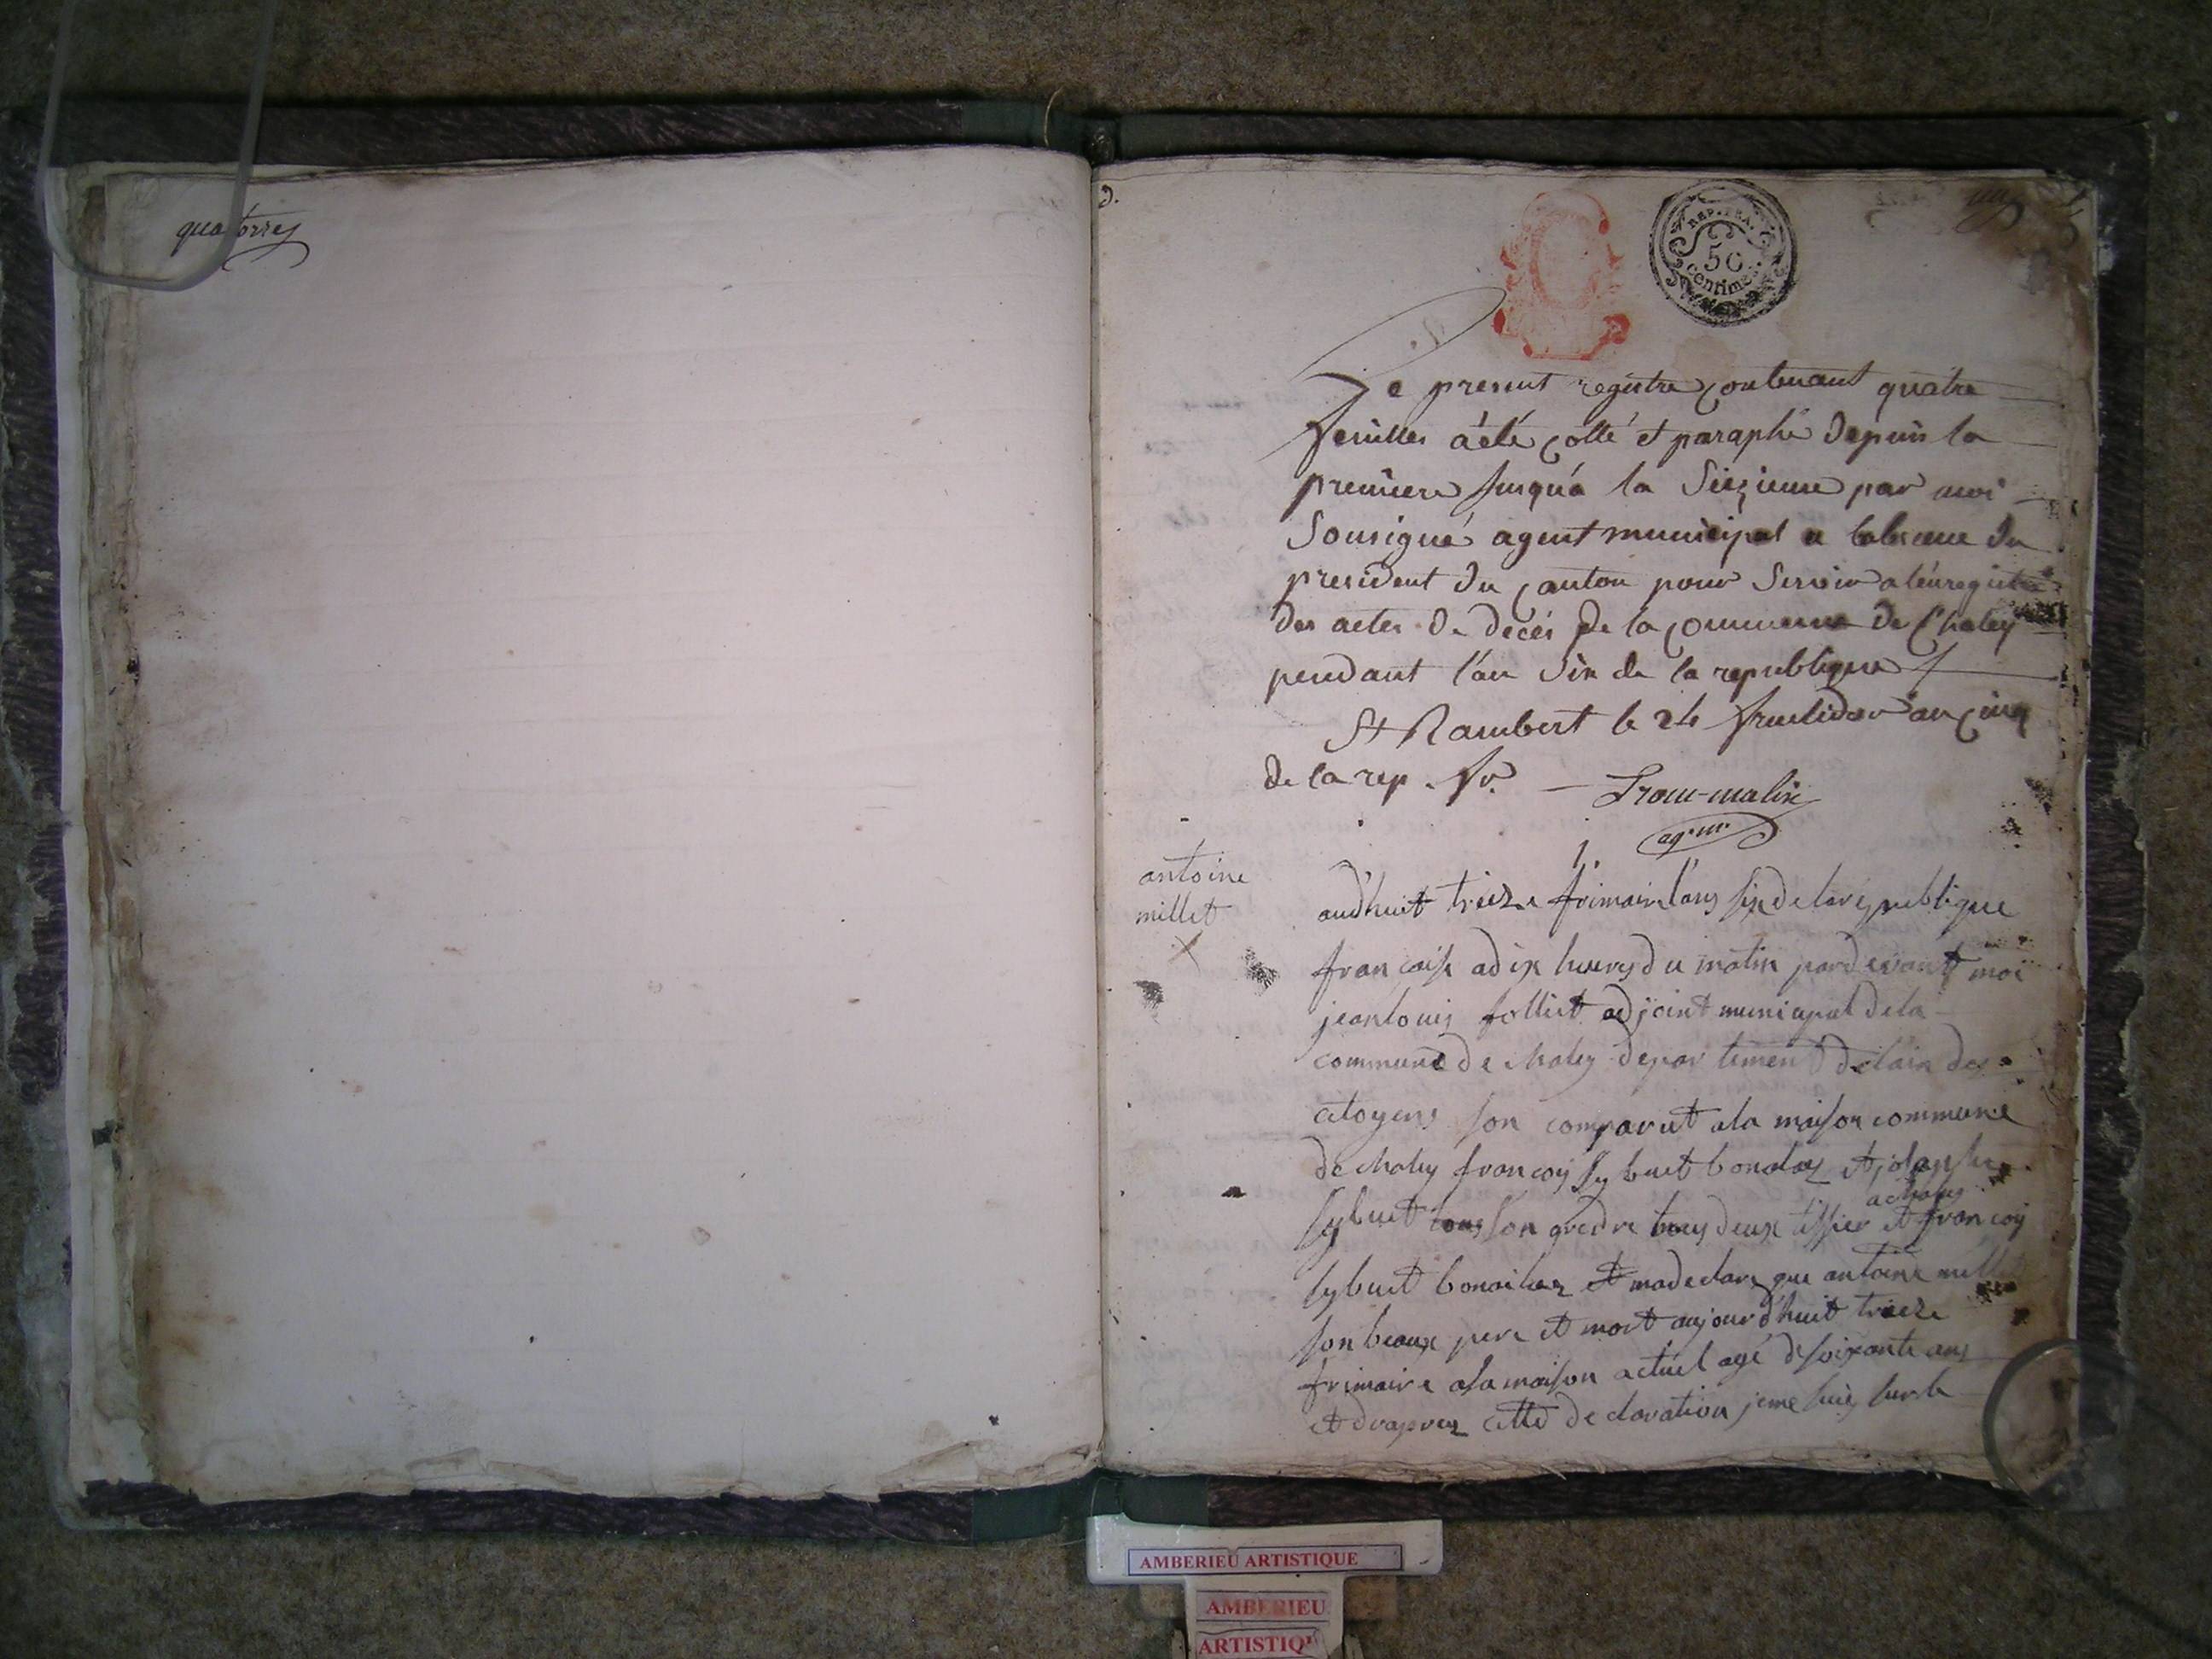 quatorze
D.
REP. FRA.
50
centimes
Le present registre contenant quatre
feuilles a été cotté et paraphé depuis la
premiere jusqu'a la Seizieme par moi
Sousigné agent municipal a labscence du
president du canton pour Servir a l'enregistre
des actes de decés de la commune de Chaley
pendant l'an Six de la republique
St Rambert le 24 fructidor an cinq
de la rep. fr.
ag. m.
1.
antoine
millet
audhuit trieze frimaire lans six de larepublique
francaise a dix heures du matin pardevant moi
jean louis folliet adjoint municipal de la
commune de chaley departement de lain des
citoyens son comparut a la maison commune
de chaley francoy sybuet et josephe
sybuet son gredre tous deux tissier a chaley et francoy
sybuet et ma declare que antoine millet
son beaux pere et mort aujourd'huit trieze
frimaire a sa maison actuel agé de soixante ans
et drapres cette declaration je me suis sur le
AMBERIEU ARTISTIQUE
AMBERIEU
ARTISTIQU